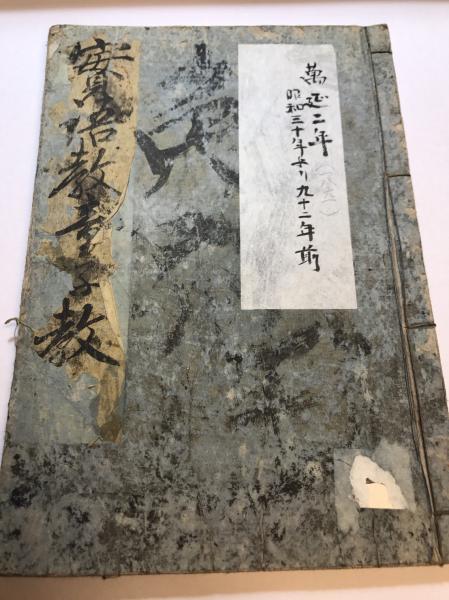 萬延二年
昭和三十年ヨリ九十二年前
實語教童子教